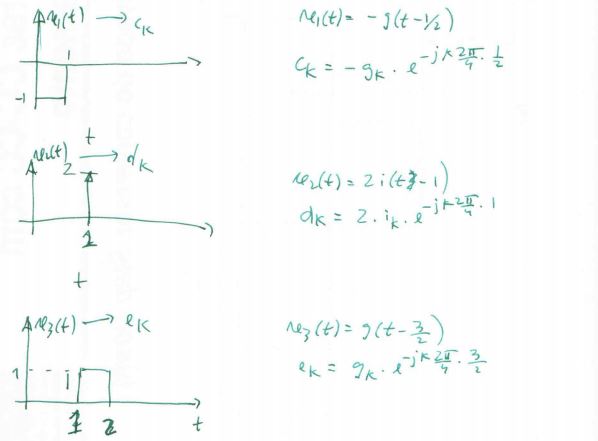 x₁(t) → cₖ
1
-1
x₁(t) = -g(t-1/2)
cₖ = -gₖ · e^{-jk 2π/4 · 1/2}
+
x₂(t) → dₖ
2
1
x₂(t) = 2 i(t-1)
dₖ = 2 · iₖ · e^{-jk 2π/4 · 1}
+
x₃(t) → eₖ
1
1 2 t
x₃(t) = g(t - 3/2)
eₖ = gₖ · e^{-jk 2π/4 · 3/2}